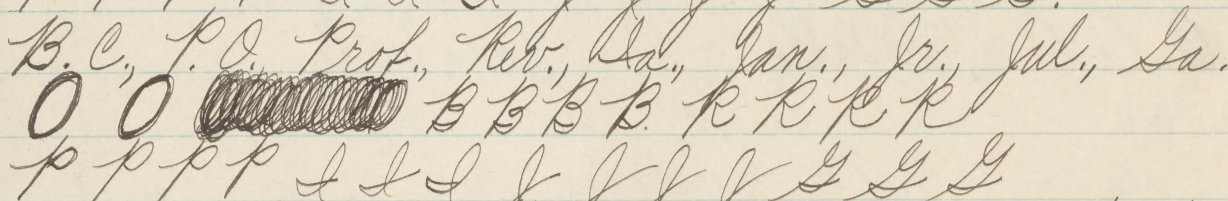 B. C., P. O., Prof., Rev., Ia., Jan., Jr., Jul., Ga.
O O B B B B. R R R R
P P P P I I I J J J J G G G